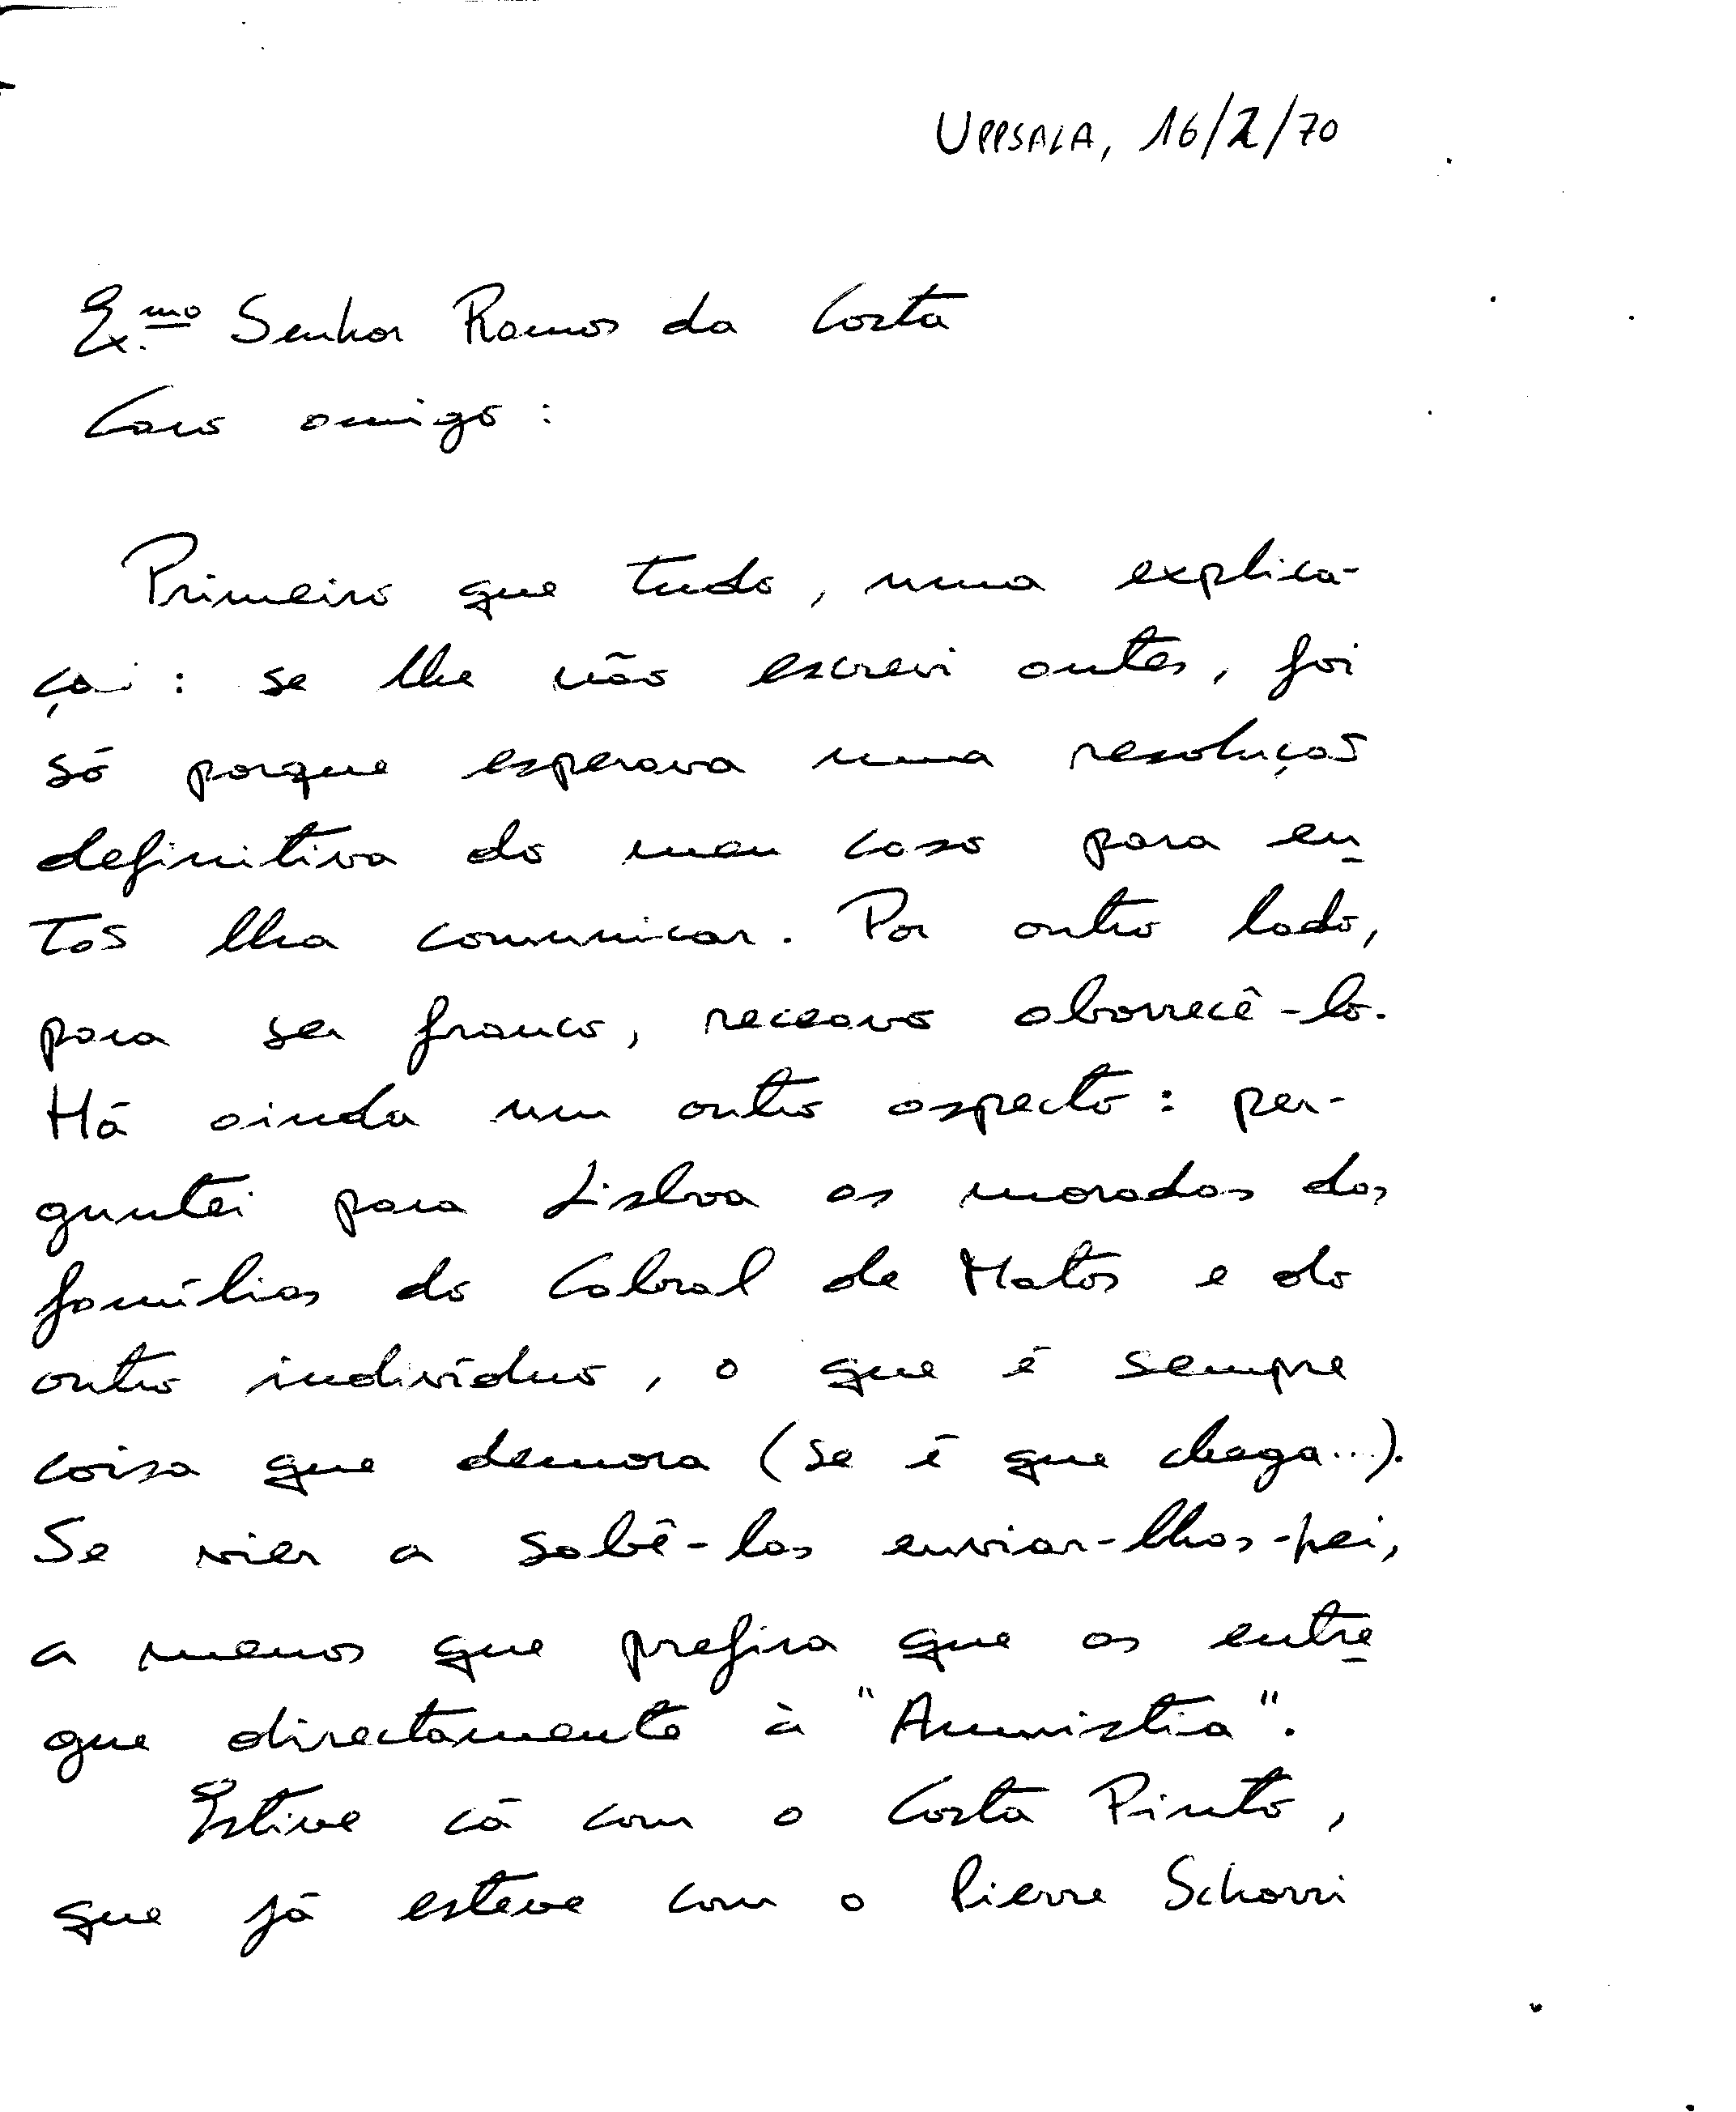 UPPSALA, 16/2/70
Ex.mo Senhor Ramos da Costa
Caro amigo:
Primeiro que tudo, uma explica-
ção: se lhe não escrevi antes, foi
só porque esperava uma resolução
definitiva do meu caso para en-
tão lha comunicar. Por outro lado,
para ser franco, receava aborrecê-lo.
Há ainda um outro aspecto: per-
guntei para Lisboa as moradas das
famílias do Cabral de Matos e do
outro indivíduo, o que é sempre
coisa que demora (se é que chega...).
Se vier a sabê-las enviar-lhas-hei,
a menos que prefira que as entre
gue directamente à "Amnistia".
Estive cá com o Costa Pinto,
que já esteve com o Pierre Schorri